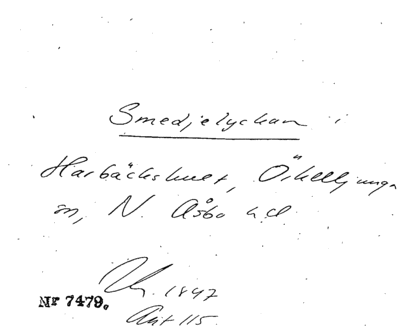 Smedjelyckan i
Harbäckshult, Örkelljunga
sn, N. Åsbo hd
1847
Nr 7479.
Akt 115